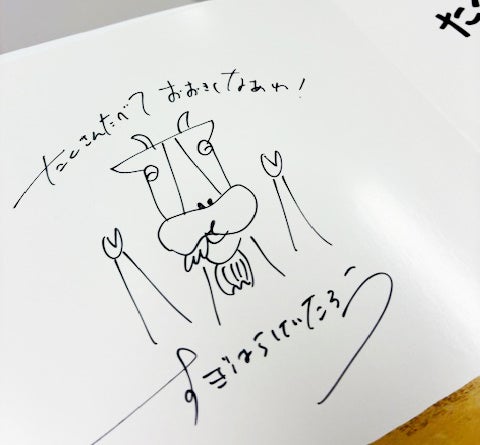 たくさんたべて おおきくなあれ!
すぎはらけいたろう
た